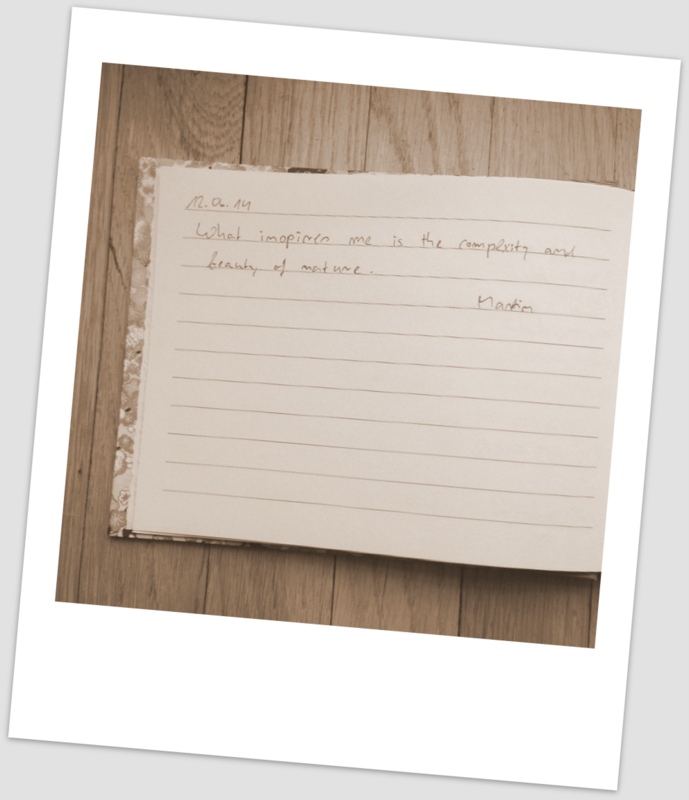 12.06.14
What inspires me is the complexity and
beauty of nature.
Martin